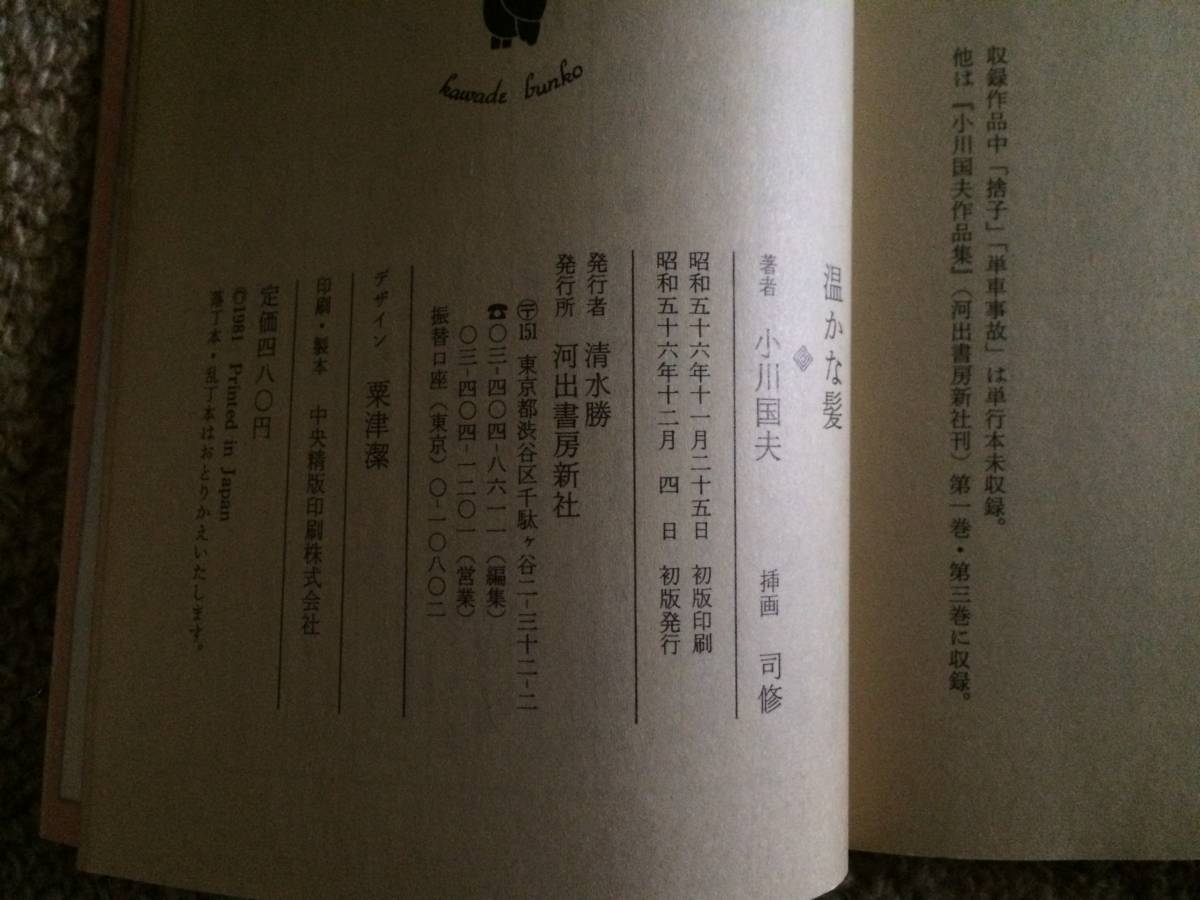 収録作品中「捨子」「単車事故」は単行本未収録。
他は『小川国夫作品集』（河出書房新社刊）第一巻・第三巻に収録。
kawade bunko
温かな髪
著者 小川国夫 挿画 司修
昭和五十六年十一月二十五日 初版印刷
昭和五十六年十二月 四 日 初版発行
発行者 清水勝
発行所 河出書房新社
〶151 東京都渋谷区千駄ヶ谷二-三十二-二
☎〇三-四〇四-八六一一（編集）
〇三-四〇四-一二〇一（営業）
振替口座（東京）〇-一〇八〇二
デザイン 粟津潔
印刷・製本 中央精版印刷株式会社
定価四八〇円
©1981 Printed in Japan
落丁本・乱丁本はおとりかえいたします。